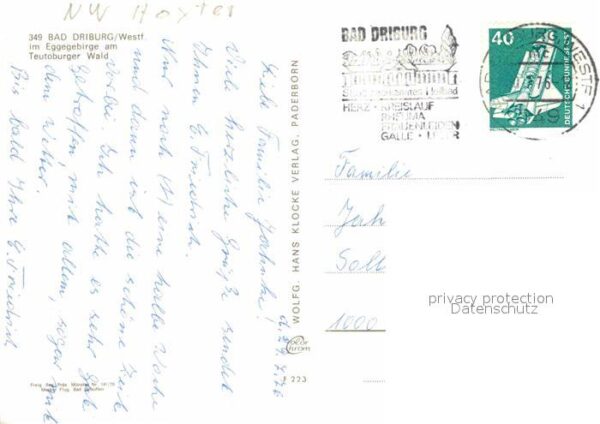 NW Höxter
349 BAD DRIBURG/Westf.
im Eggegebirge am
Teutoburger Wald
d. 29.7.76
Liebe Familie Jahnke!
Viele herzliche Grüße sendet
Ihnen E. Friedrich.
Nur noch (1) eine halbe Woche
und dann ist die schöne Zeit
vorbei. Ich hatte es sehr gut
getroffen, mit allem, sogar mit
dem Wetter.
Bis bald Ihre E. Friedrich
WOLFG. HANS KLOCKE VERLAG, PADERBORN
F 223
BAD DRIBURG
HERZ · KREISLAUF
RHEUMA
FRAUENLEIDEN
GALLE · LEBER
40
DEUTSCHE BUNDESPOST
Familie
Jah
Sold
1000
privacy protection
Datenschutz